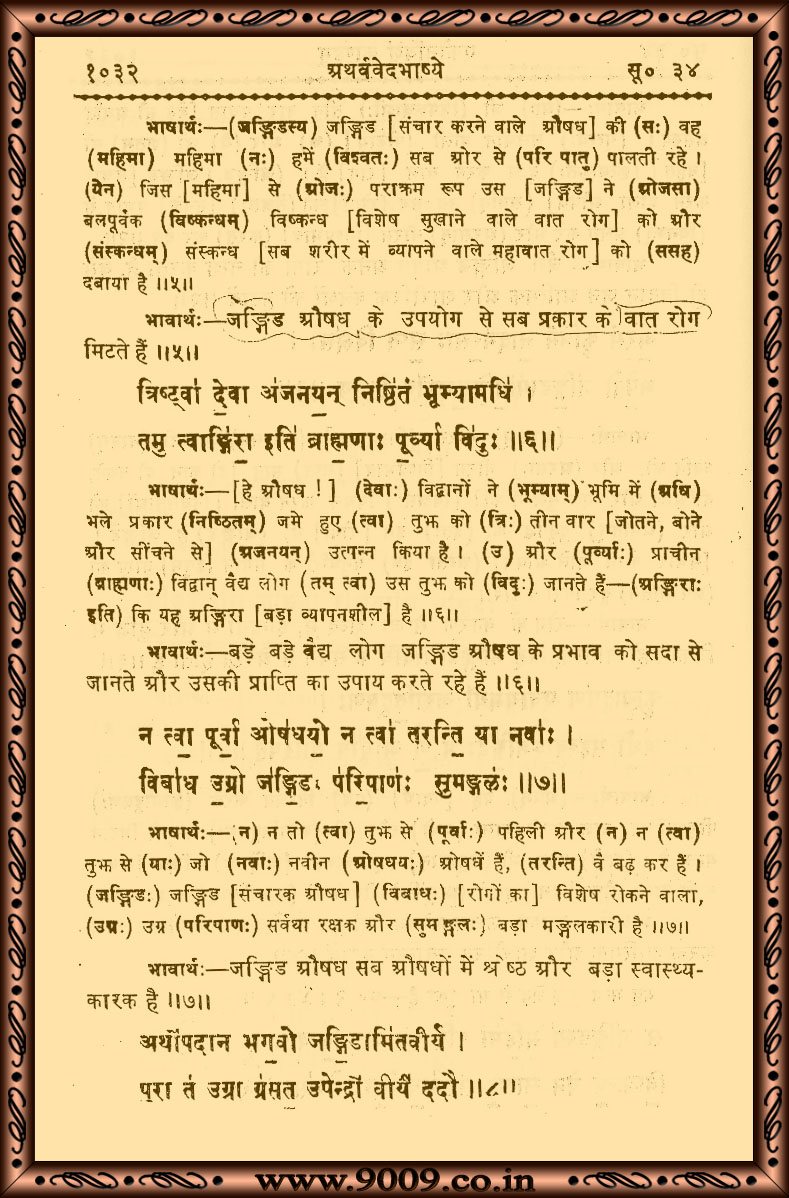 १०३२ अथर्ववेदभाष्ये सू० ३४
भाषार्थः—(जङ्गिडस्य) जङ्गिड [संचार करने वाले औषध] की (सः) वह
(महिमा) महिमा (नः) हमें (विश्वतः) सब ओर से (परि पातु) पालती रहे ।
(येन) जिस [महिमा] से (ओजः) पराक्रम रूप उस [जङ्गिड] ने (ओजसा)
बलपूर्वक (विष्कन्धम्) विष्कन्ध [विशेष सुखाने वाले वात रोग] को और
(संस्कन्धम्) संस्कन्ध [सब शरीर में व्यापने वाले महावात रोग] को (ससह)
दबाया है ॥५॥
भावार्थः—जङ्गिड औषध के उपयोग से सब प्रकार के वात रोग
मिटते हैं ॥५॥
त्रिष्ट्वा॑ दे॒वा अ॑जनय॒न् निष्ठि॑तं॒ भूम्या॒मधि॑ ।
तमु॒ त्वाङ्गि॑रा॒ इति॑ ब्राह्म॒णाः पू॒र्व्या वि॑दुः ॥६॥
भाषार्थः—[हे औषध !] (देवाः) विद्वानों ने (भूम्याम्) भूमि में (अधि)
भले प्रकार (निष्ठितम्) जमे हुए (त्वा) तुझ को (त्रिः) तीन वार [जोतने, बोने
और सींचने से] (अजनयन्) उत्पन्न किया है । (उ) और (पूर्व्याः) प्राचीन
(ब्राह्मणाः) विद्वान् वैद्य लोग (तम् त्वा) उस तुझ को (विदुः) जानते हैं—(अङ्गिराः
इति) कि यह अङ्गिरा [बड़ा व्यापनशील] है ॥६॥
भावार्थः—बड़े बड़े वैद्य लोग जङ्गिड औषध के प्रभाव को सदा से
जानते और उसकी प्राप्ति का उपाय करते रहे हैं ॥६॥
न त्वा॒ पूर्वा॒ ओष॑धयो॒ न त्वा॑ तरन्ति॒ या नवाः॑ ।
विबा॑ध उ॒ग्रो ज॑ङ्गि॒डः प॑रि॒पाणः॑ सु॒मङ्गलः॑ ॥७॥
भाषार्थः—(न) न तो (त्वा) तुझ से (पूर्वाः) पहिली और (न) न (त्वा)
तुझ से (याः) जो (नवाः) नवीन (ओषधयः) ओषधें हैं, (तरन्ति) वे बढ़ कर हैं ।
(जङ्गिडः) जङ्गिड [संचारक औषध] (विबाधः) [रोगों का] विशेष रोकने वाला,
(उग्रः) उग्र (परिपाणः) सर्वथा रक्षक और (सुमङ्गलः) बड़ा मङ्गलकारी है ॥७॥
भावार्थः—जङ्गिड औषध सब औषधों में श्रेष्ठ और बड़ा स्वास्थ्य-
कारक है ॥७॥
अथो॑पदान भगवो॒ जङ्गि॒डामि॑तवीर्य ।
पु॒रा त॑ उ॒ग्रा ग्र॑सत॒ उपेन्द्रो॑ वी॒र्यं॑ ददौ ॥८॥
www.9009.co.in